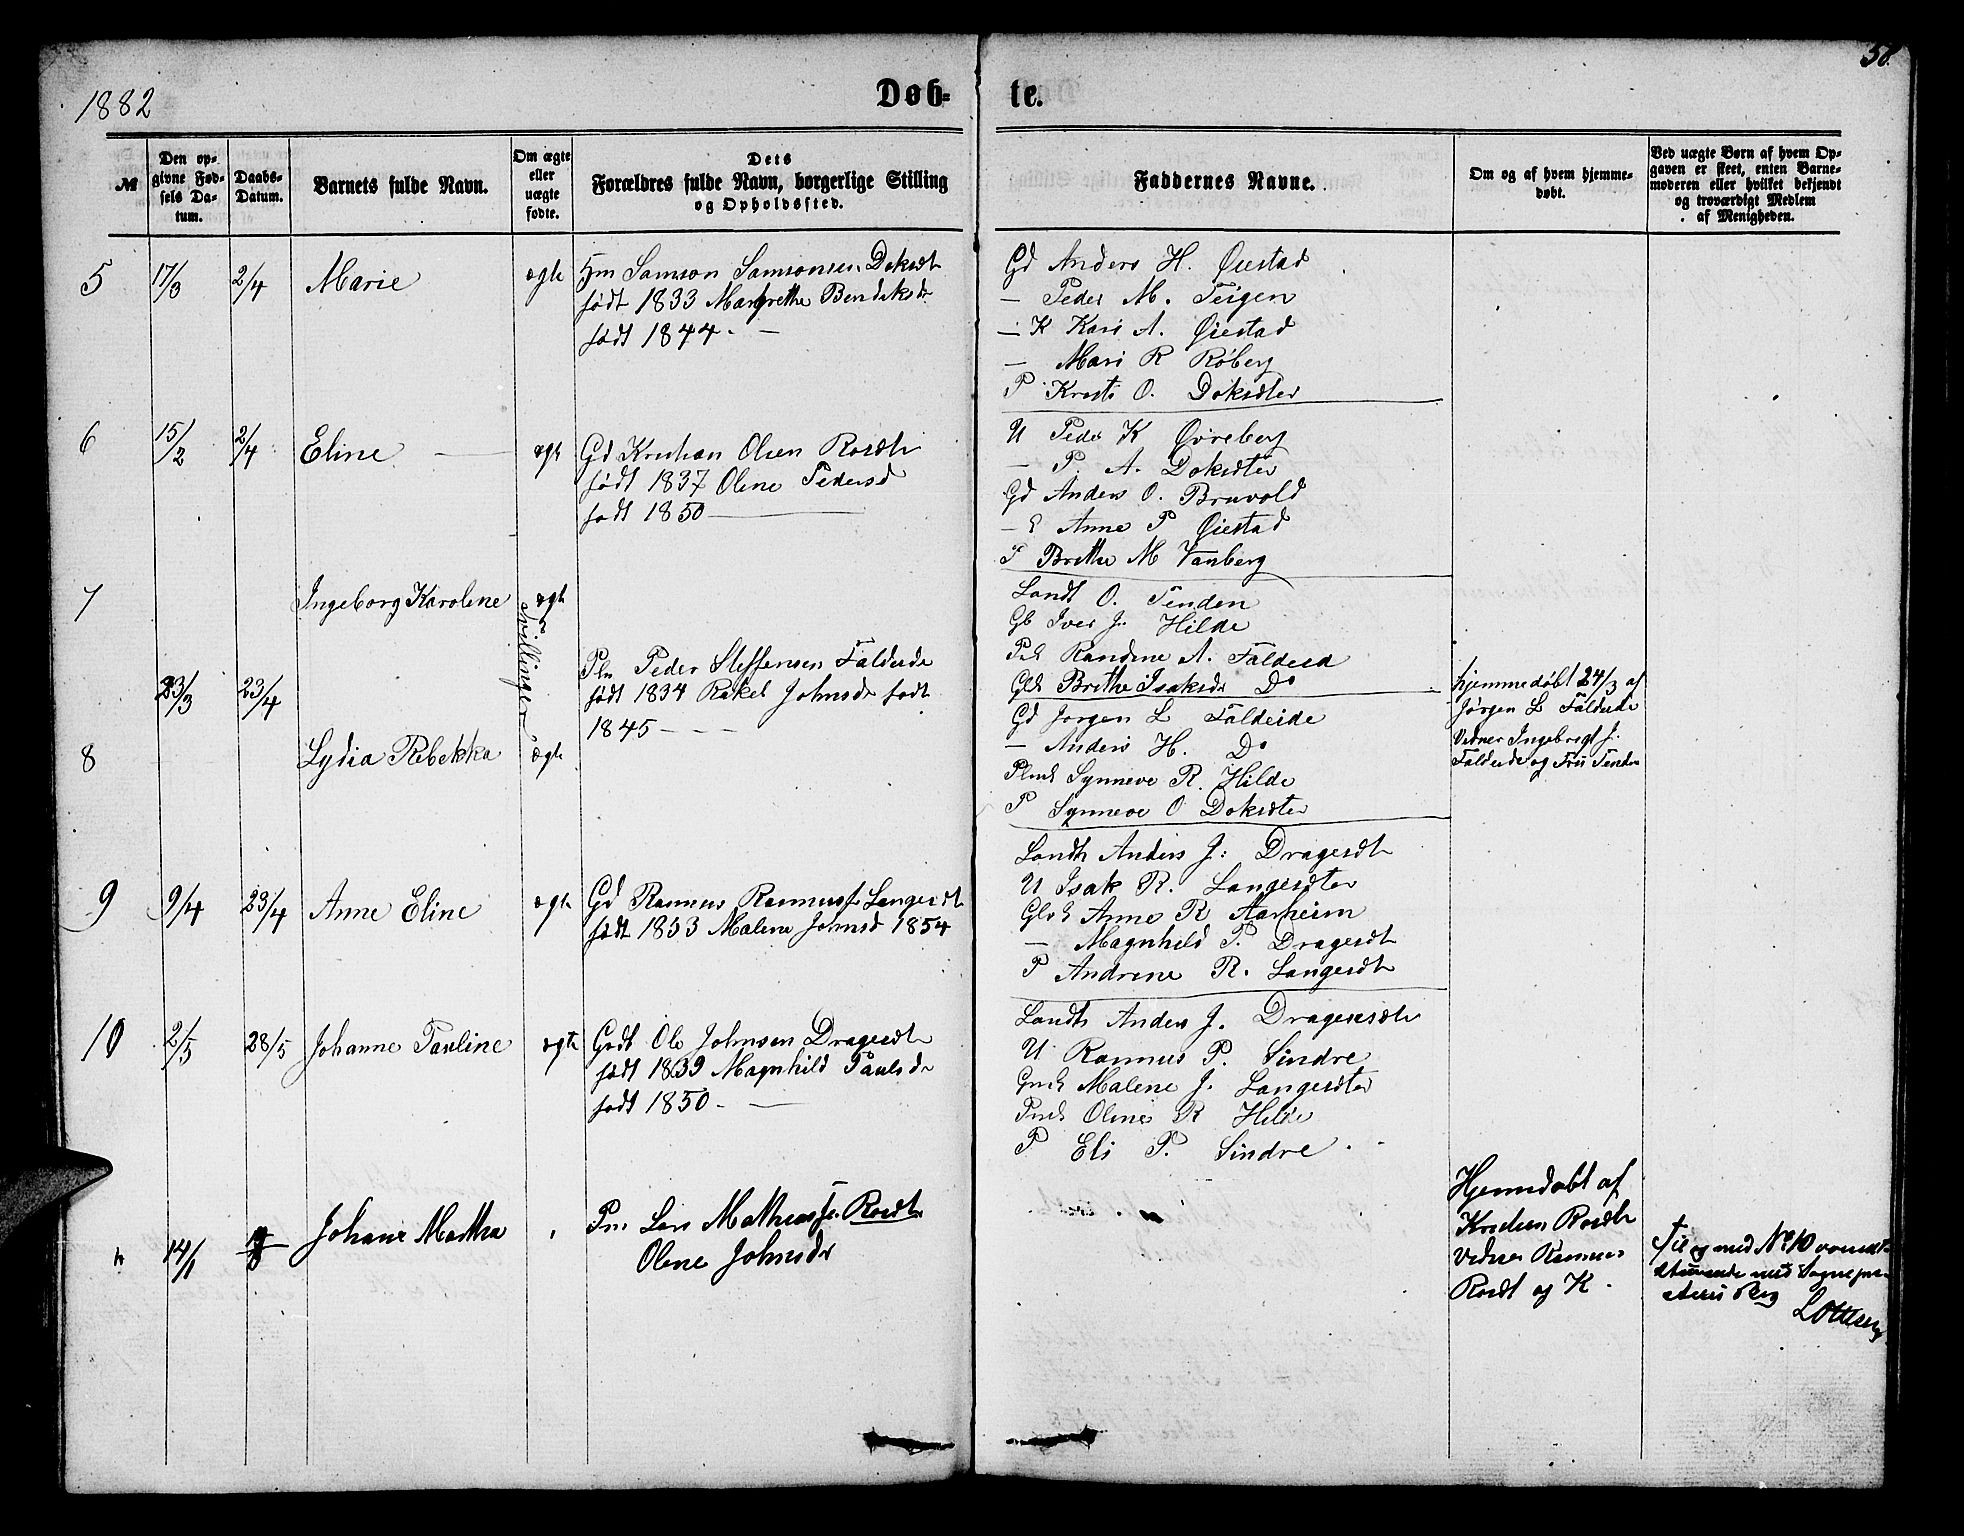 58.
1882
Døb-
te.
№
Den opgivne Fødsels Datum.
Daabs-Datum.
Barnets fulde Navn.
Om ægte eller uægte fødte.
Dets
Forældres fulde Navn, borgerlige Stilling
og Opholdssted.
Faddernes Navne.
Om og af hvem hjemme-
døbt.
Ved uægte Børn af hvem Op-
gaven er skeet, enten Barne-
moderen eller hvilket bekjendt
og troværdigt Medlem
af Menigheden.
5 17/3 2/4 Marie ægte
Hm Samson Samsonsen Doksdtr
født 1833 Margrethe Bendiksdr
født 1844 - —
Gd Anders H. Øiestad
— Peder M. Teigen
— K Kari A. Øiestad
— Mari R Røberg
P Kristi O. Doksdter
6 15/2 2/4 Eline — ægte
Gd Kristian Olsen Rosdtr
født 1837 Oline Pedersd
født 1850 —
U Peder K Øvreberg
— P. A. Doksdter
Gd Anders O. Bruvold
— Anne P Øiestad
P Brithe M Vanberg
7 Ingeborg Karolene ægte
Tvillinger
23/3 23/4
Plm Peder Steffensen Faldeide
født 1834 Rakel Johnsdr født
1845 - - -
8 Lydia Rebekka ægte
Landh O. Tenden
Gb Iver J. Hilde
Randine A. Faldeid
Brithe Isaksdr Do
Gd Jørgen L Faldeide
— Anders H. Do
Synneve R. Hilde
P Synneve O Doksdter
hjemmedøbt 24/3 af
Jørgen L Faldeide
Vidner Ingebregt J.
Faldeide og Fru Tenden
9 9/4 23/4 Anne Eline ægte
Gd Rasmus Rasmuss. Langesdt
født 1853 Malene Johnsd 1854
Landh Anders J. Dragesdt
U Isak R. Langesdter
Anne R Aarheim
— Magnhild P. Dragesdt
P Andrine R. Langesdt
10 2/5 28/5 Johanne Pauline ægte
Grdt Ole Johnsen Dragesdt
født 1839 Magnhild Paulsdr
født 1850 - —
Landh Anders J. Dragesdt
U Rasmus P. Sindre
Malene J. Langesdter
Oline R Hilde
P Eli P. Sindre
14/1 Johane Martha
Pm Lars Mathiass. Rosdt
Olene Johnsdr
Hjemmedøbt af
Kristian Rosdtr
Vidner Rasmus
Rosdt og K.
Til og med No 10 overens-
stemmende med Sognepre-
stens Bog